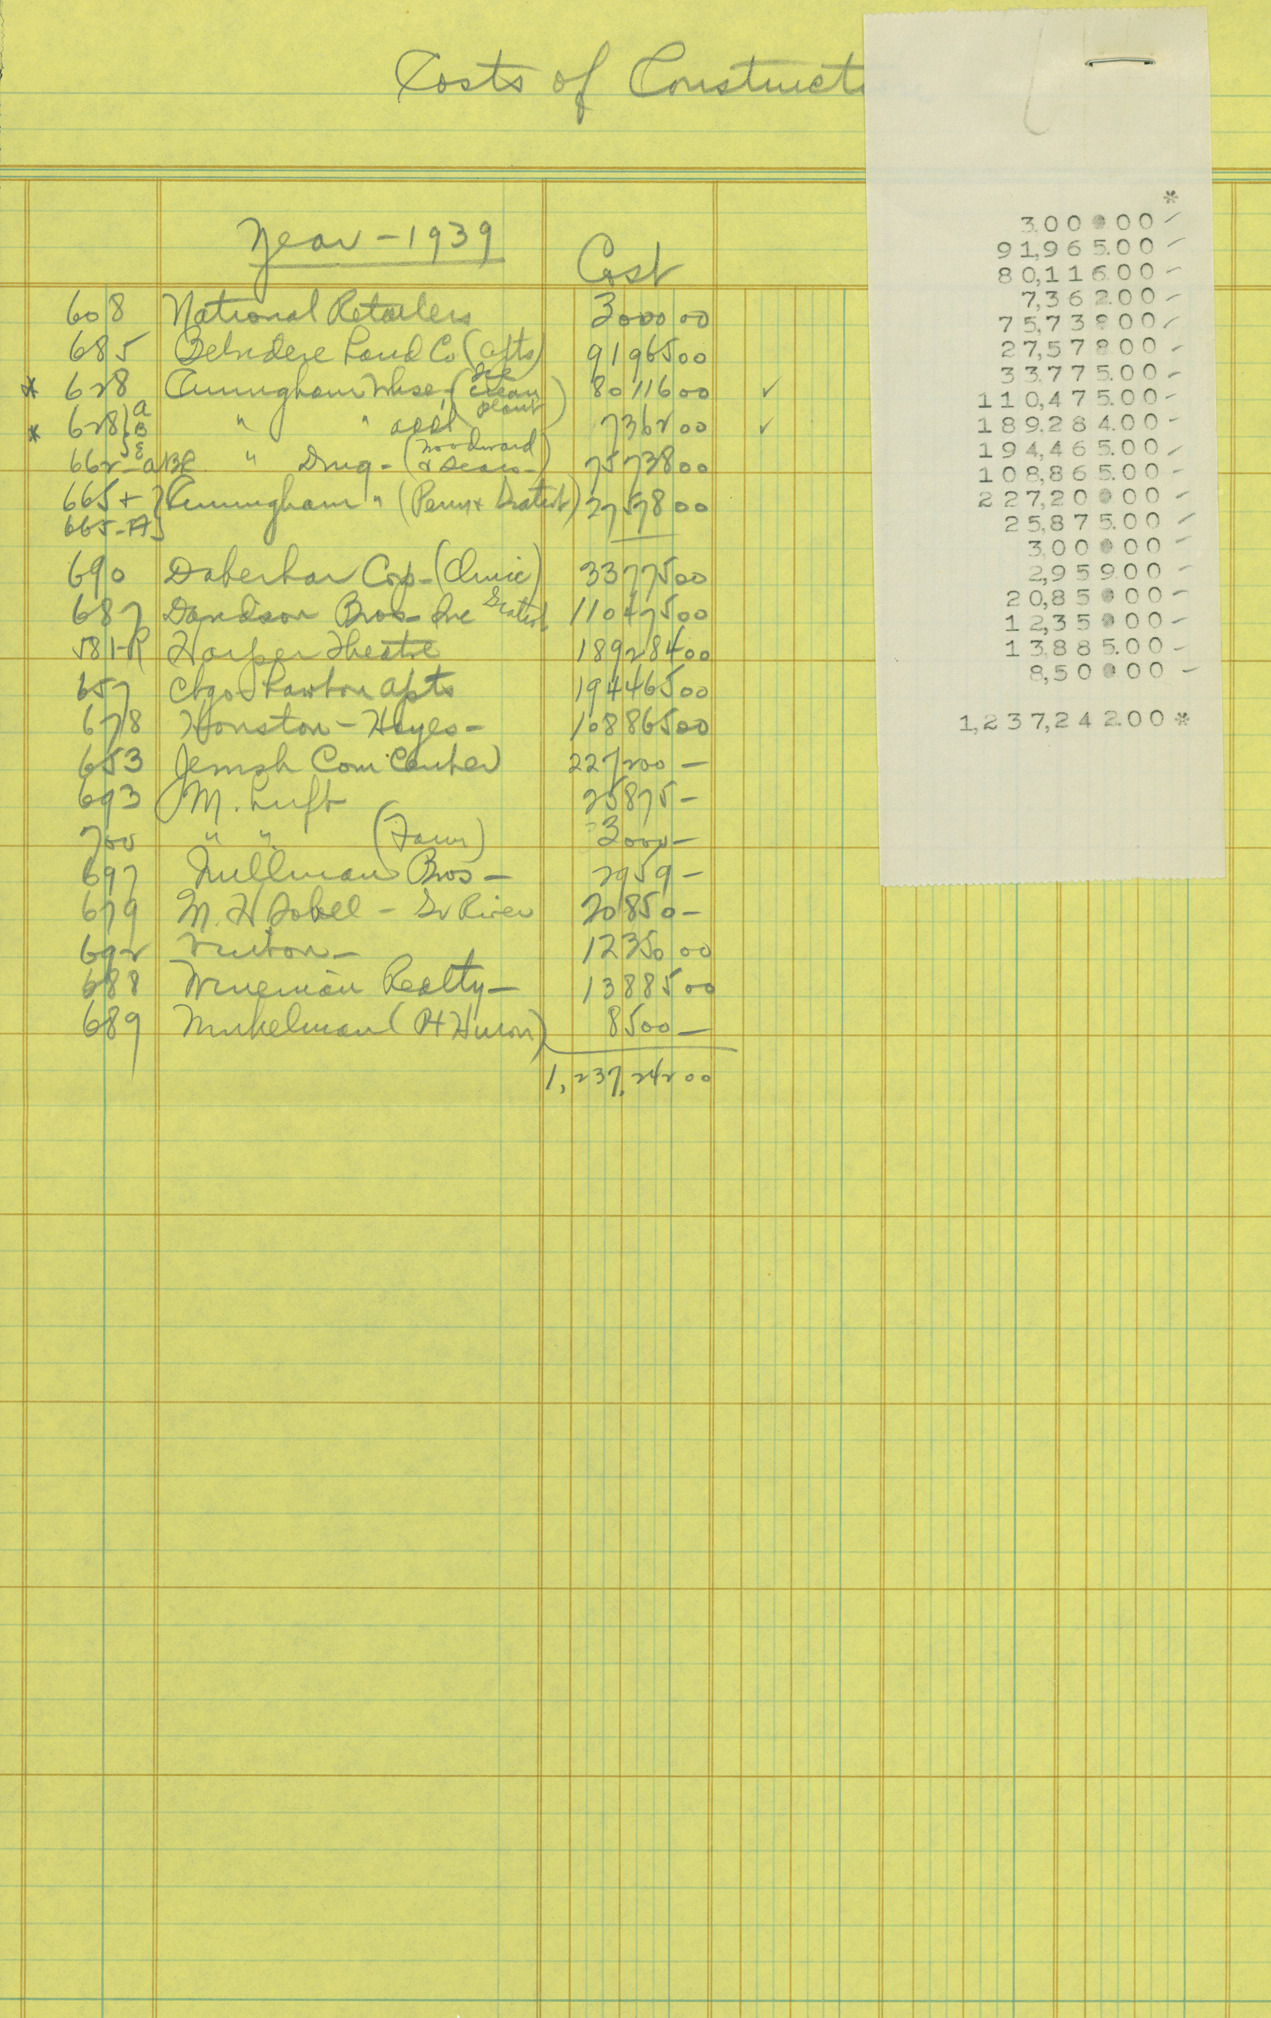 Costs of Constructi
Year - 1939
Cost
608 National Retailers 3000 00
685 Belvidere Land Co (apts) 91965 00
* 628 Cunningham Whse - (Ice Cream plant) 80116 00 ✓
* 628 { A B & " " addl 7362 00 ✓
662-ABC " Drug - (Woodward & Sears-) 75738 00
665 + } Cunningham " (Penn + Gratiot) 27578 00
665-A }
690 Daberkar Corp - (Clinic) 33775 00
687 Davidson Bros - Inc Gratiot 110475 00
581-R Harper Theatre 189284 00
657 Chgo - Lawton Apts 194465 00
678 Houston - Hayes - 108865 00
653 Jewish Com. Center 227200 —
693 M. Luft 25875 —
700 " " (Farm) 3000 —
697 Bros — 2959 —
679 M. H Sobell - Gr River 20850 —
692 12350 00
688 Wineman Realty — 13885 00
689 Winkelman (Pt Huron) 8500 —
1,237,242 00
*
3,000.00
91,965.00
80,116.00
7,362.00
75,738.00
27,578.00
33,775.00
110,475.00
189,284.00
194,465.00
108,865.00
227,200.00
25,875.00
3,000.00
2,959.00
20,850.00
12,350.00
13,885.00
8,500.00
1,237,242.00 *